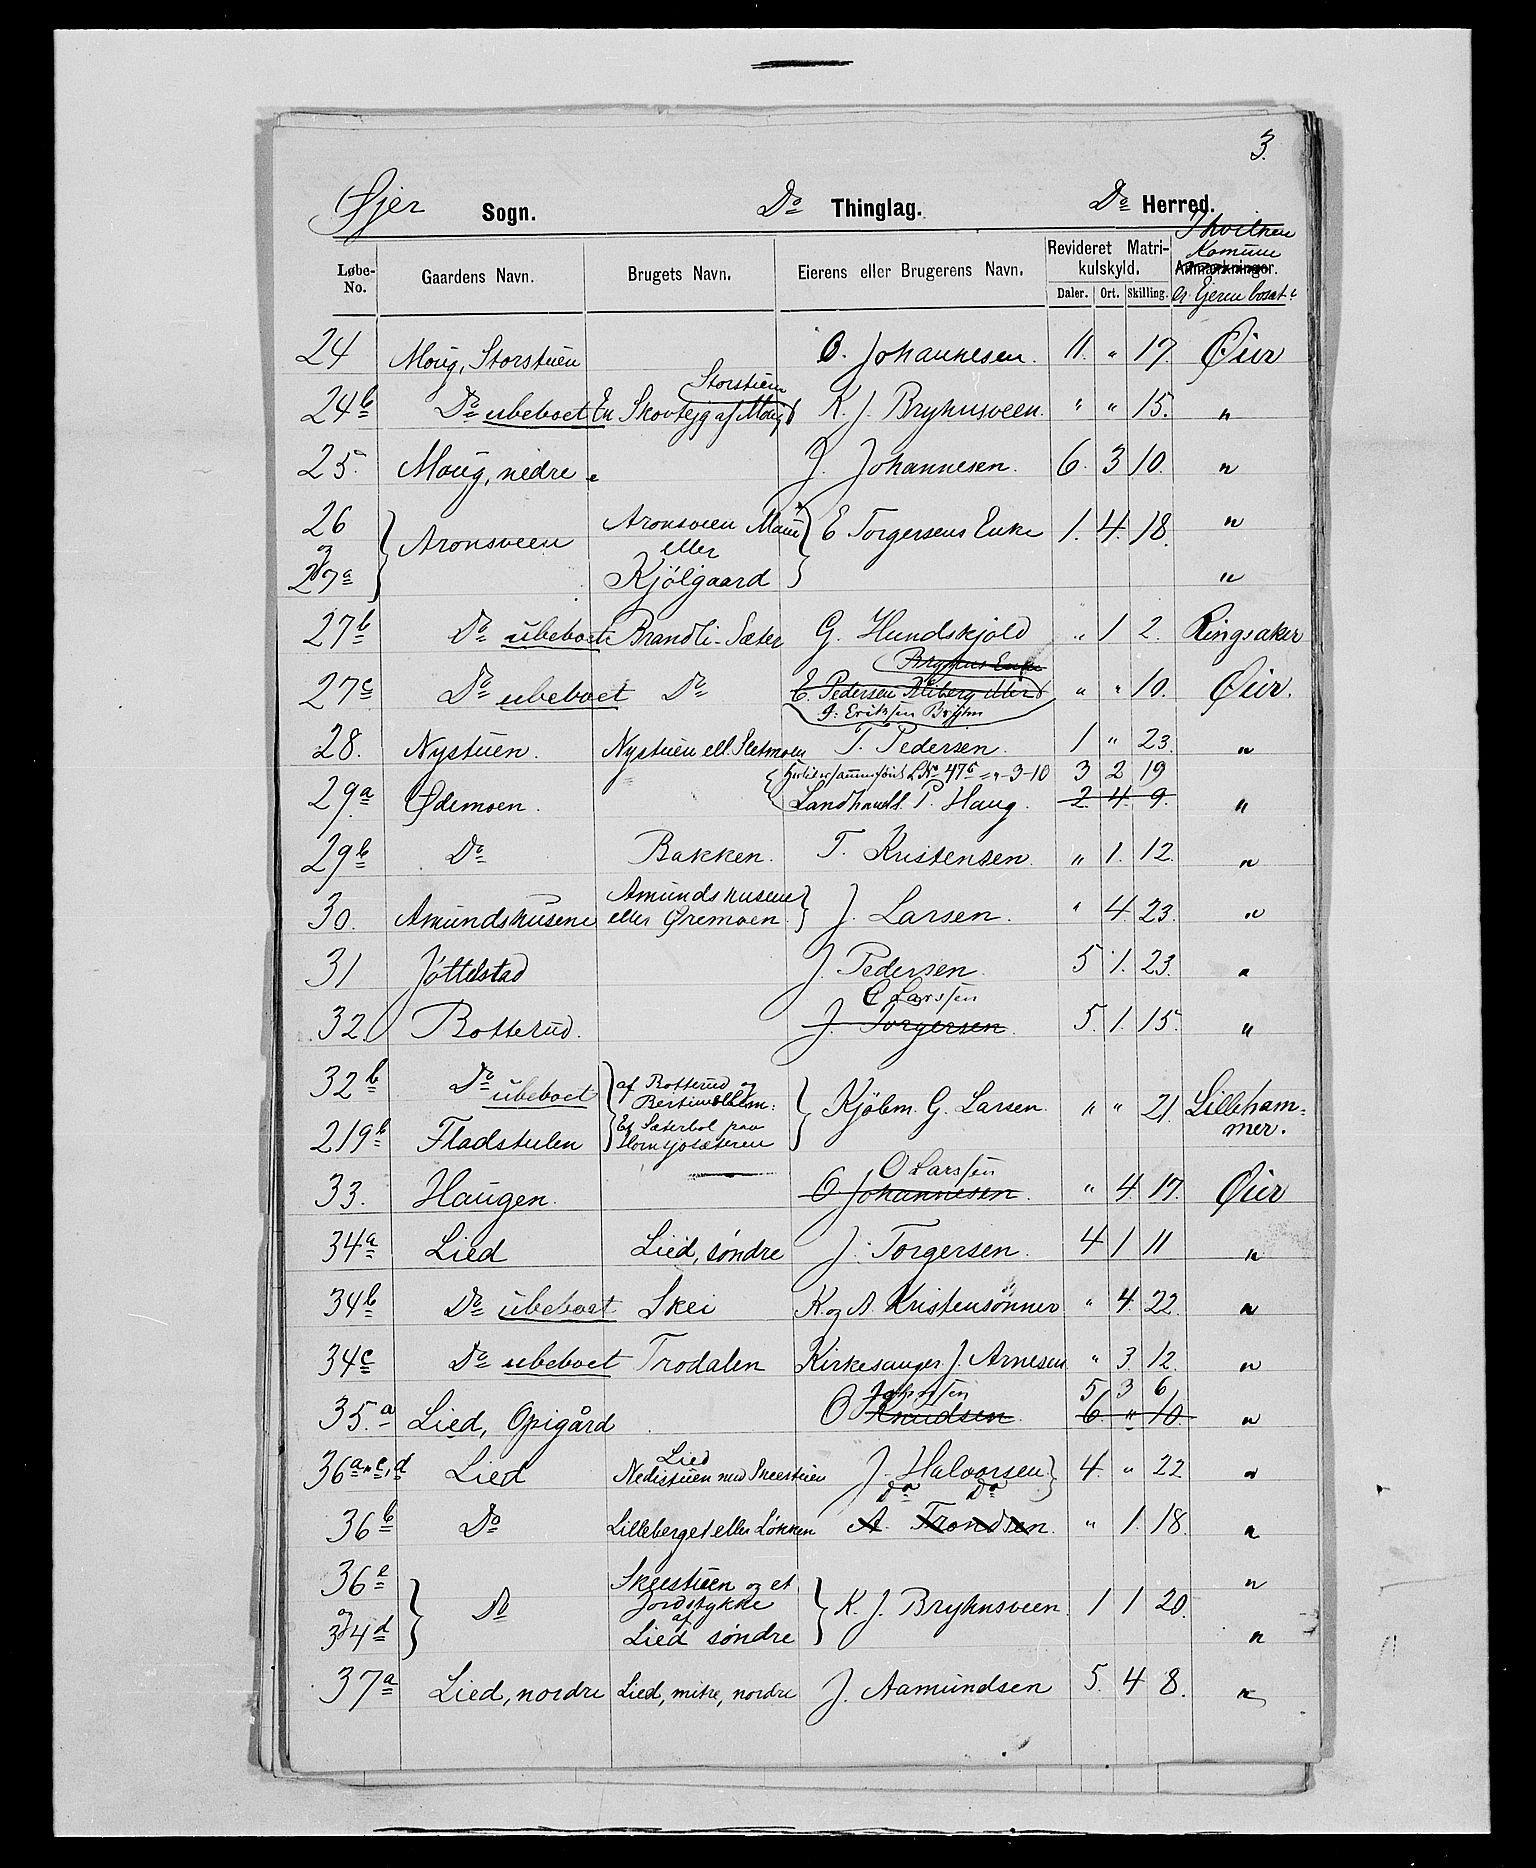 3.
Øjer Sogn. Do Thinglag. Do Herred.
Løbe-No. Gaardens Navn. Brugets Navn. Eierens eller Brugerens Navn. Revideret Matrikulskyld. Daler. Ort. Skilling. Anmærkninger. I hvilken Komune er Ejeren bosat
24 Moug, Storstuen O. Johannesen. 11. " 17. Øier
Storstuen
24b Do ubeboet En Skovtejg af Moug K. J. Bryhnsveen. " " 15. "
25. Moug, nedre J. Johannesen. 6. 3 10. "
26 Aronsveen Maur "
og Aronsveen eller E Torgersens Enke 1. 4. 18.
27a Kjölgaard "
27b Do ubeboet Brandli-Sæter G. Hundskjold " 1 2. Ringsaker
Bryhns Enke
27c Do ubeboet Do E. Pedersen " " 10. Øier.
G. Eriksen Bryhn
28. Nystuen. Nystuen ell. Sletmoen T. Pedersen. 1 " 23 "
LNo 47b " " 3-10 3 2 19
29a Ødemoen. Landhandl. P. Haug. 2. 4. 9. "
29b Do Bakken. T. Kristensen. " 1. 12. "
Amundshusene
30. Amundshusene eller Øremoen J. Larsen. " 4 23. "
31 Jöttestad J. Pedersen. 5 1. 23. "
Larssen
32. Rotterud. J. Torgersen. 5. 1. 15. "
32b Do ubeboet af Rotterud og
Kjöbm. G. Larsen. " " 21. Lilleham=
219b Fladstulen Et Sæterbol paa mer.
Hornsjosæteren
O Larssen
33. Haugen. O Johannesen. " 4 17. Øier
34a Lied Lied, söndre J. Torgersen. 4 1 11 "
34b Do ubeboet Skei K. og A. Kristensönner " 4 22. "
34c Do ubeboet Trodalen Kirkesanger J. Arnesen " 3 12. "
Johnssen 5 3 6
35.a Lied, Opigård O Knudsen. 6 " 10. "
Lied
36a,c,d Lied Nedistuen med Skeestuen J. Halvorsen 4. " 22 "
Do Do
36b Do Lilleberget eller Lökken A. Trondsen. " 1. 18. "
36e Skeestuen og et "
og Do Jordstykke K. J. Bryhnsveen. 1 1 20.
af
34d Lied söndre "
37a Lied, nordre Lied, mitre, nordre J. Aamundsen 5. 4 8. "